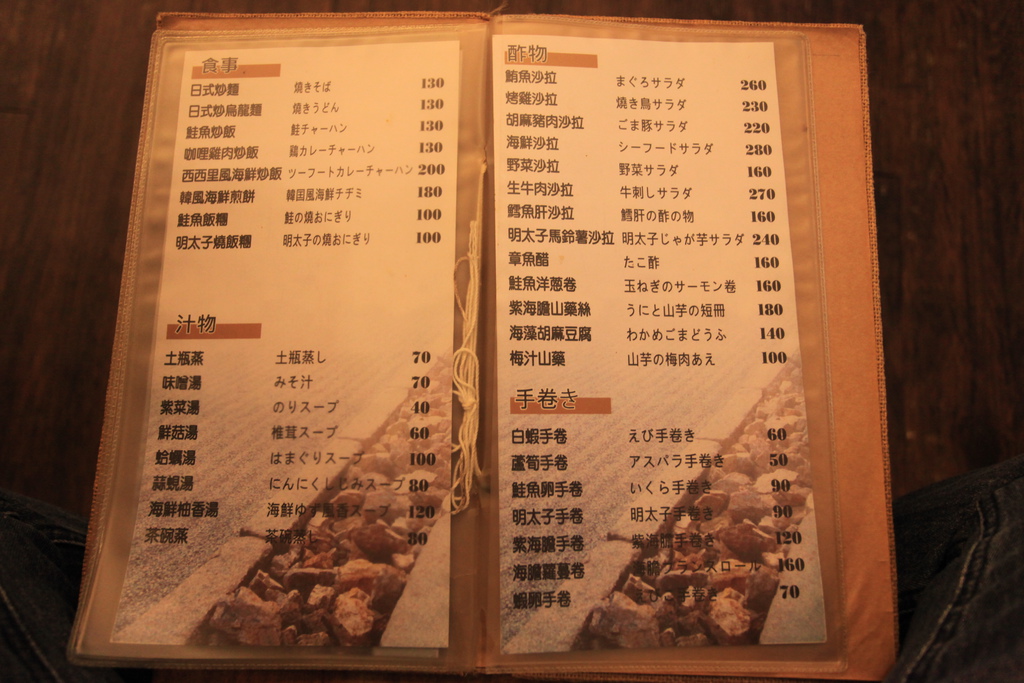 食事
日式炒麵 燒きそば 130
日式炒烏龍麵 燒きうどん 130
鮭魚炒飯 鮭チャーハン 130
咖哩雞肉炒飯 鶏カレーチャーハン 130
西西里風海鮮炒飯 ツーフートカレーチャーハン 200
韓風海鮮煎餅 韓国風海鮮チヂミ 180
鮭魚飯糰 鮭の燒おにぎり 100
明太子燒飯糰 明太子の燒おにぎり 100
汁物
土瓶蒸 土瓶蒸し 70
味噌湯 みそ汁 70
紫菜湯 のりスープ 40
鮮菇湯 椎茸スープ 60
蛤蠣湯 はまぐりスープ 100
蒜蜆湯 にんにくしじみスープ 80
海鮮柚香湯 海鮮ゆず風香スープ 120
茶碗蒸 茶碗蒸し 80
酢物
鮪魚沙拉 まぐろサラダ 260
烤雞沙拉 燒き鳥サラダ 230
胡麻豬肉沙拉 ごま豚サラダ 220
海鮮沙拉 シーフードサラダ 280
野菜沙拉 野菜サラダ 160
生牛肉沙拉 牛刺しサラダ 270
鱈魚肝沙拉 鱈肝の酢の物 160
明太子馬鈴薯沙拉 明太子じゃが芋サラダ 240
章魚醋 たこ酢 160
鮭魚洋蔥卷 玉ねぎのサーモン卷 160
紫海膽山藥絲 うにと山芋の短冊 180
海藻胡麻豆腐 わかめごまどうふ 140
梅汁山藥 山芋の梅肉あえ 100
手卷き
白蝦手卷 えび手卷き 60
蘆筍手卷 アスパラ手卷き 50
鮭魚卵手卷 いくら手卷き 90
明太子手卷 明太子手卷き 90
紫海膽手卷 紫海膽手卷き 120
海膽蘿蔓卷 ロール 160
蝦卵手卷 えびこ手卷き 70